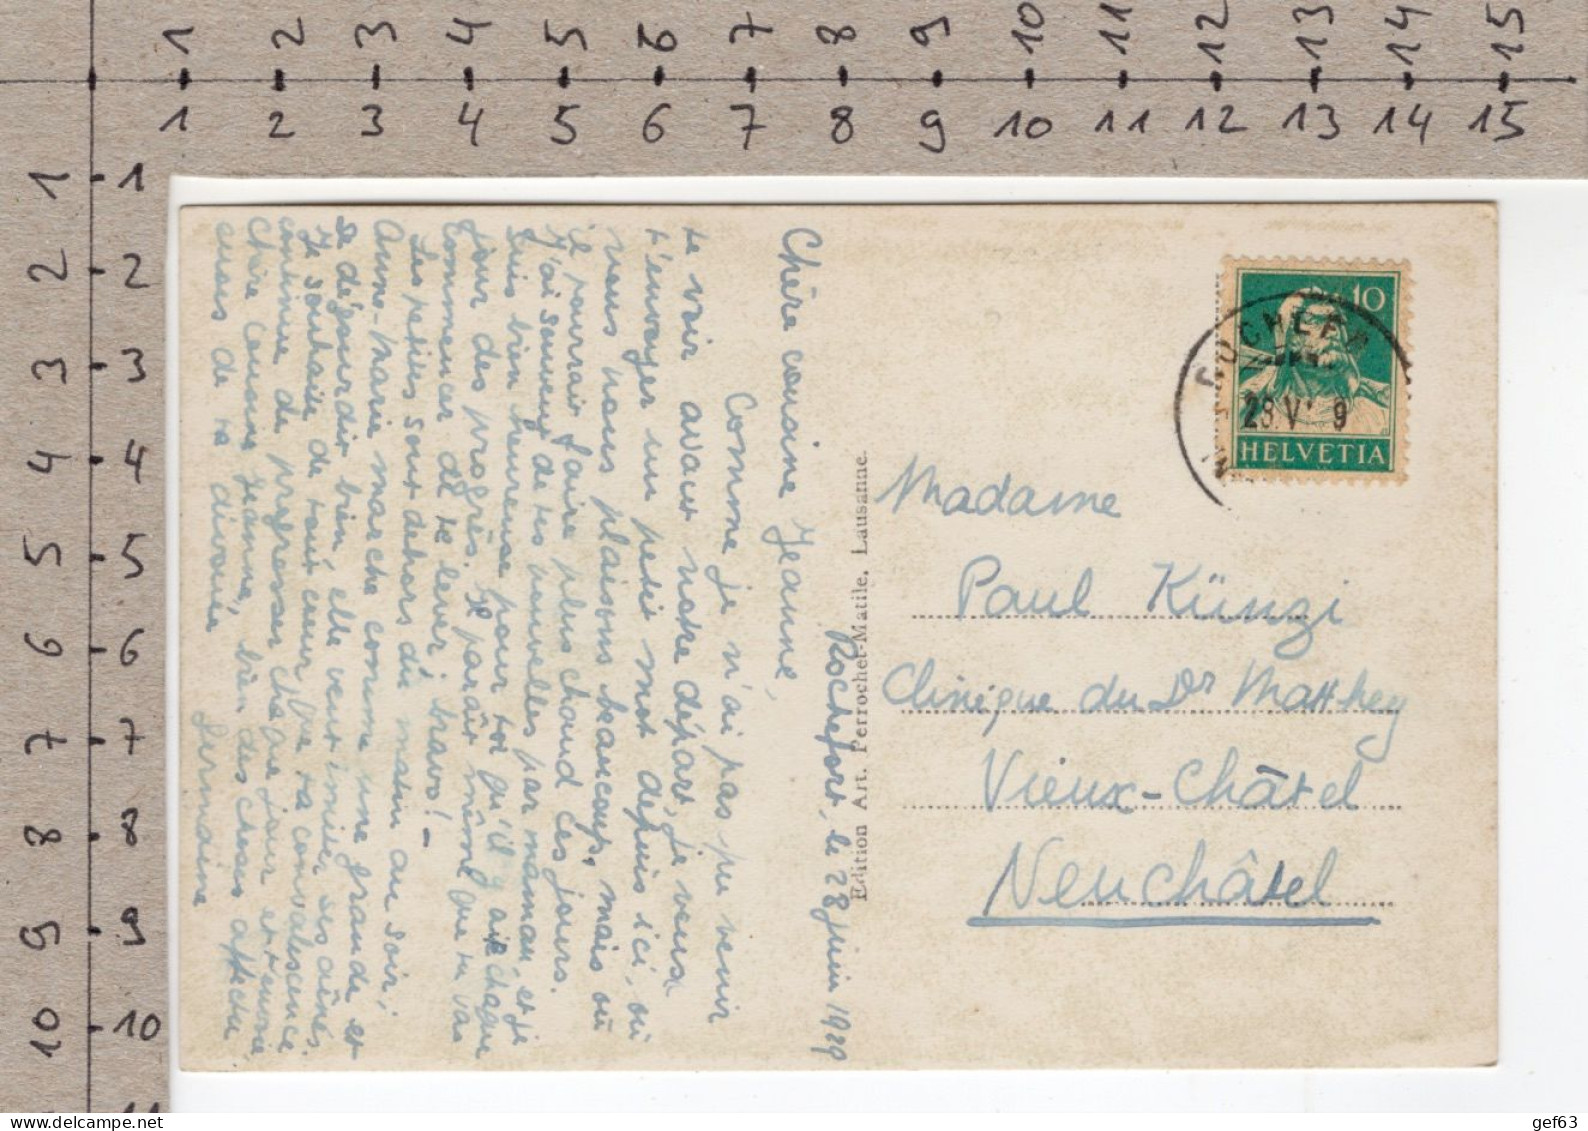 1 2 3 4 5 6 7 8 9 10 11 12 13 14 15
1 2 3 4 5 6 7 8 9 10 11 12 13 14 15
1 1
2 2
3 3
4 4
5 5
6 6
7 7
8 8
9 9
10 10
11
Rochefort, le 28 juin 1929
Chère cousine Jeanne,
Comme je n'ai pas pu venir
te voir avant notre départ, je veux
t'envoyer un petit mot depuis ici, où
nous nous plaisons beaucoup, mais où
il pourrait faire plus chaud ces jours.
J'ai souvent de tes nouvelles par maman, et je
suis bien heureuse pour toi qu'il y ait chaque
jour des progrès. Il paraît même que tu vas
commencer de te lever, bravo! -
Les petites sont dehors du matin au soir;
Anne-Marie marche comme une grande et
se dégourdit bien, elle veut imiter ses aînés.
Je souhaite de tout cœur que ta convalescence
continue de progresser chaque jour et t'envoie,
chère cousine Jeanne, bien des choses affectu
euses de ta dévouée
Germaine
Edition Art. Perrochet-Matile, Lausanne.
10
HELVETIA
ROCHEFORT
28.VI 9
Madame
Paul Künzi
Clinique du Dr Matthey
Vieux-Châtel
Neuchâtel
gef63